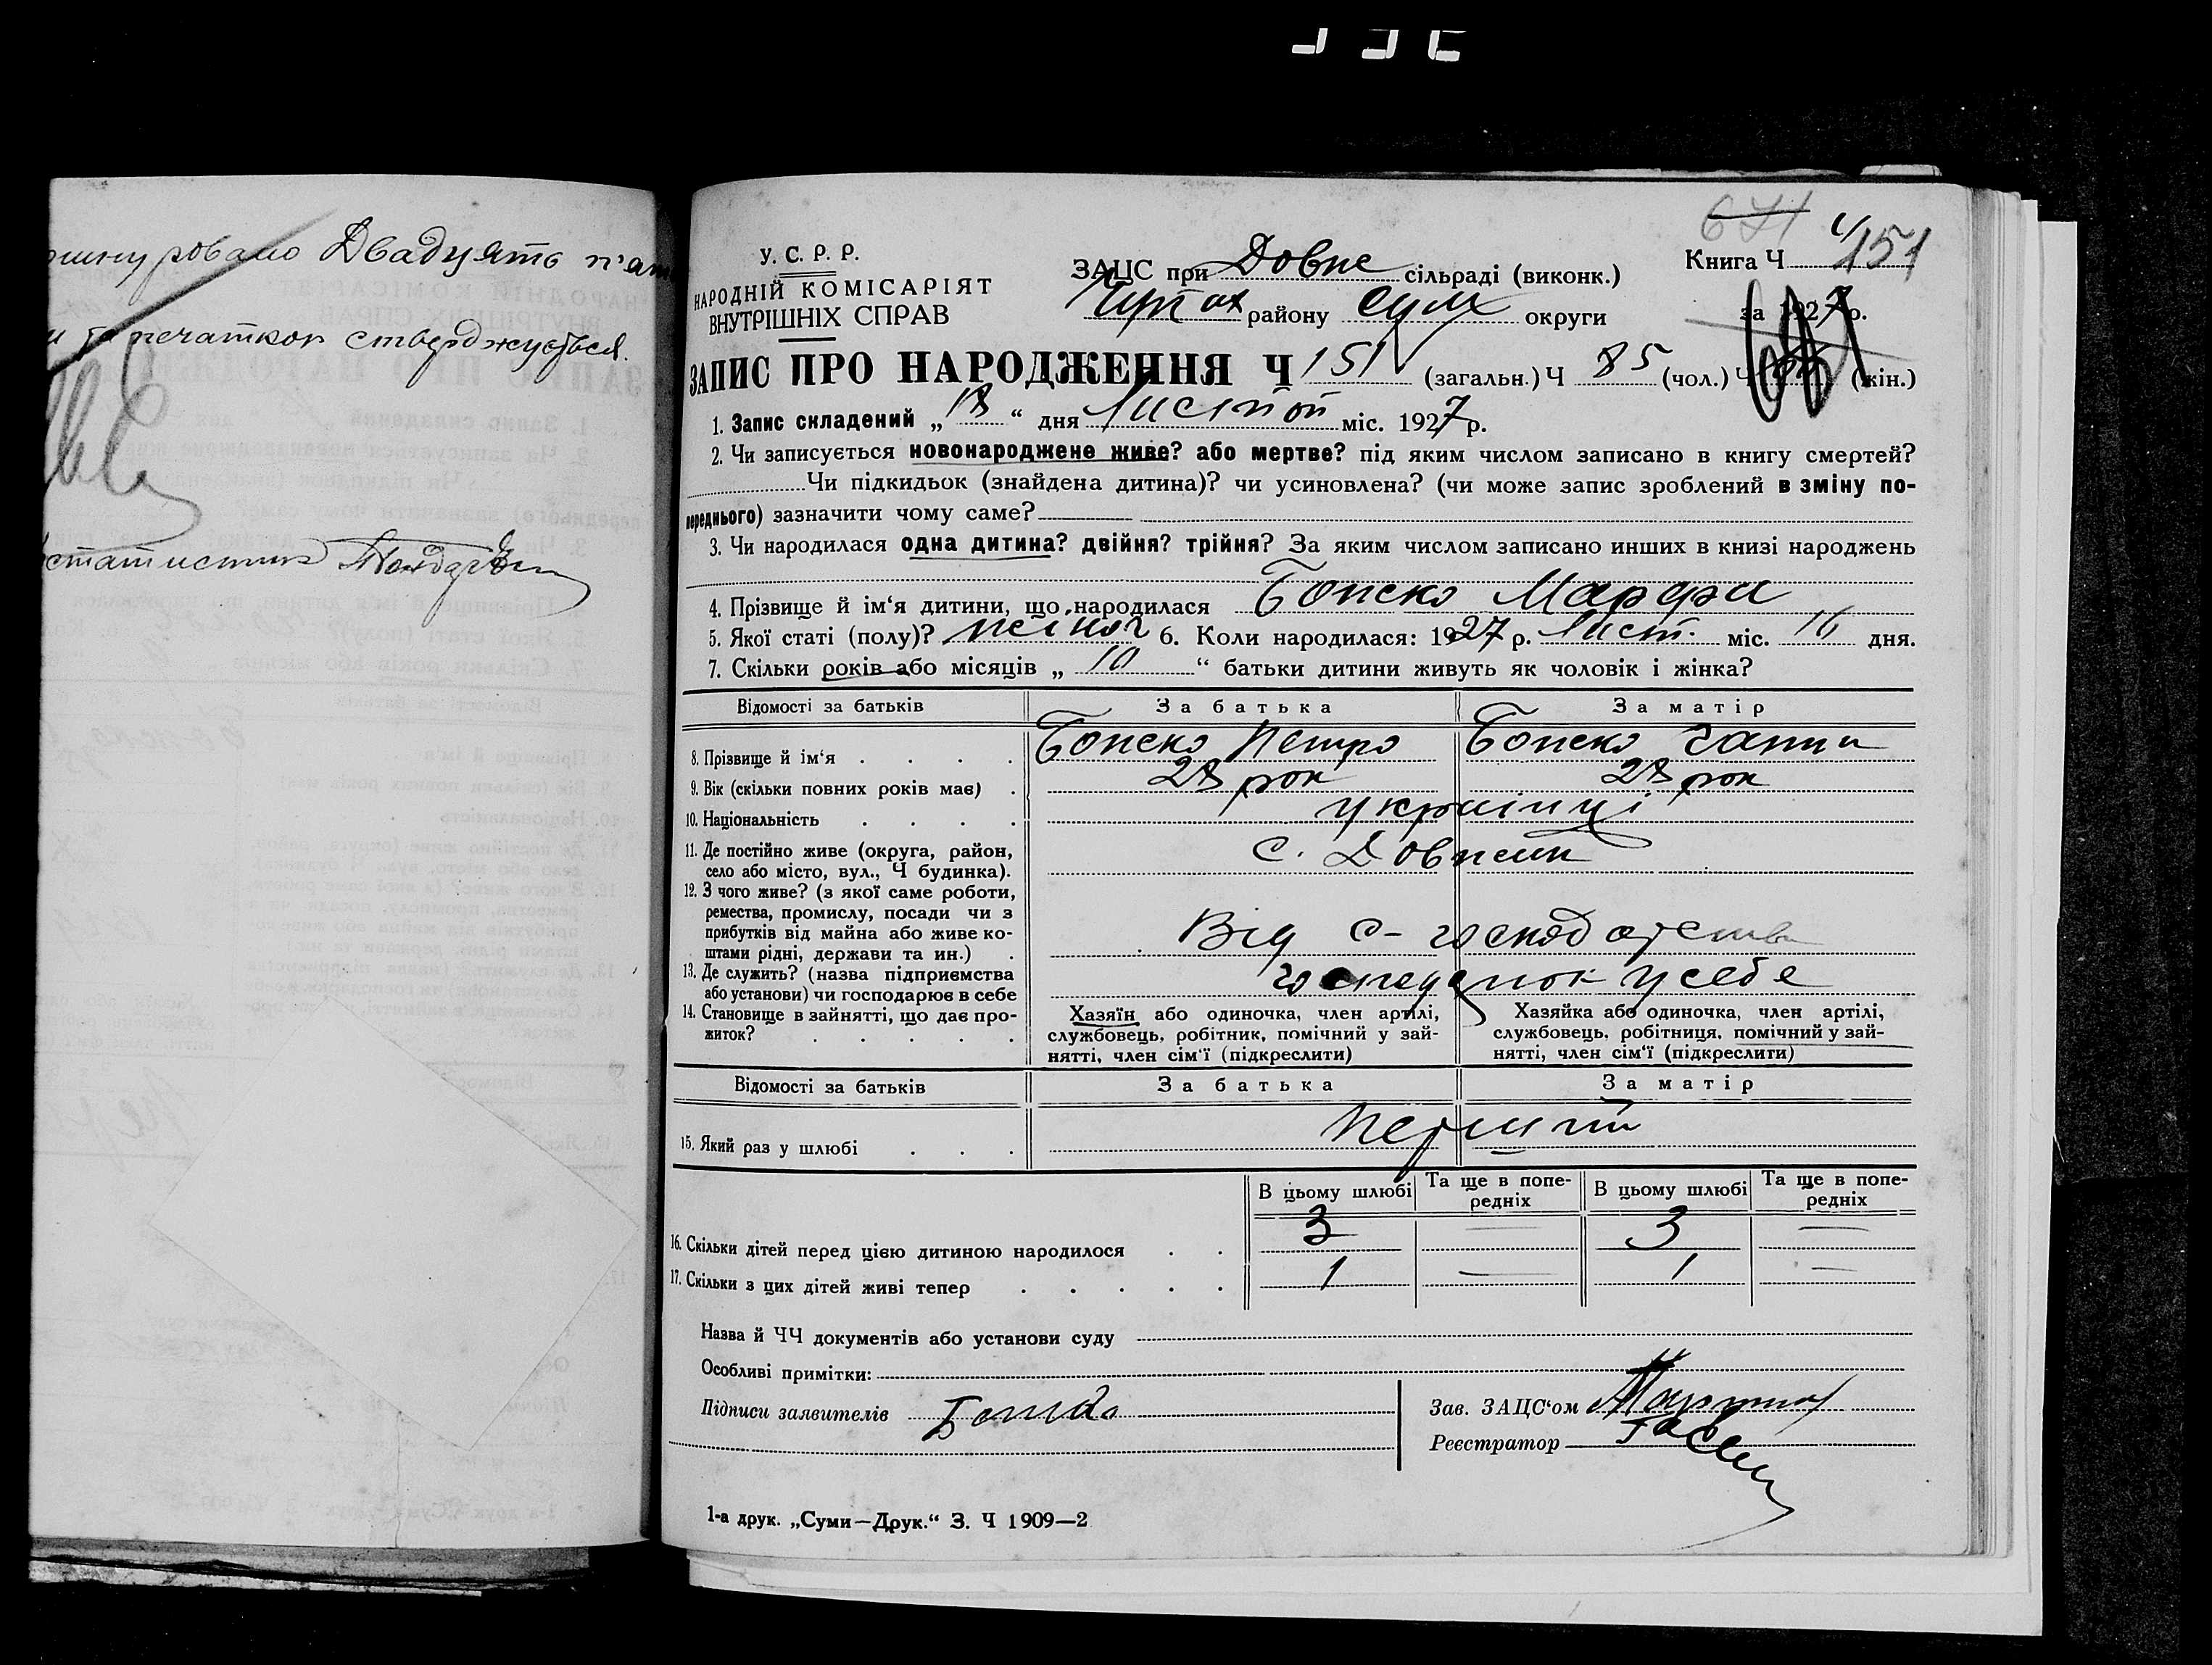 Двадцять п'ят
та печаткою стверджується.
статистик
У. С. Р. Р.
НАРОДНІЙ КОМІСАРІЯТ
ВНУТРІШНІХ СПРАВ
ЗАЦС при Довже сільраді (виконк.)
району Сум округи
671
Книга Ч 151
за 1927 р.
ЗАПИС ПРО НАРОДЖЕННЯ Ч 151 (загальн.) Ч 85 (чол.) Ч (жін.)
1. Запис складений „18“ дня Листоп міс. 1927 р.
2. Чи записується новонароджене живе? або мертве? під яким числом записано в книгу смертей?
Чи підкидьок (знайдена дитина)? чи усиновлена? (чи може запис зроблений в зміну по-
переднього) зазначити чому саме?
3. Чи народилася одна дитина? двійня? трійня? За яким числом записано инших в книзі народжень
4. Прізвище й ім‘я дитини, що народилася Марфа
5. Якої статі (полу)? жіноч 6. Коли народилася: 1927 р. Лист. міс. 16 дня.
7. Скільки років або місяців „10“ батьки дитини живуть як чоловік і жінка?
Відомості за батьків За батька За матір
8. Прізвище й ім‘я Петро
9. Вік (скільки повних років має) 28 рок 28 рок
10. Національність українці
11. Де постійно живе (округа, район,
село або місто, вул., Ч будинка). с.
12. З чого живе? (з якої саме роботи,
ремества, промислу, посади чи з
прибутків від майна або живе ко-
штами рідні, держави та ин.) Від с-господарства
13. Де служить? (назва підприємства
або установи) чи господарює в себе у себе
14. Становище в зайнятті, що дає про-
житок?
Хазяїн або одиночка, член артілі,
службовець, робітник, помічний у зай-
нятті, член сім‘ї (підкреслити)
Хазяйка або одиночка, член артілі,
службовець, робітниця, помічний у зай-
нятті, член сім‘ї (підкреслити)
Відомості за батьків За батька За матір
15. Який раз у шлюбі Перший
В цьому шлюбі Та ще в попе-
редніх В цьому шлюбі Та ще в попе-
редніх
16. Скільки дітей перед цією дитиною народилося 3 — 3 —
17. Скільки з цих дітей живі тепер 1 — 1 —
Назва й ЧЧ документів або установи суду
Особливі примітки:
Підписи заявителів
Зав. ЗАЦС‘ом
Реєстратор
1-а друк. „Суми—Друк.“ З. Ч 1909—2